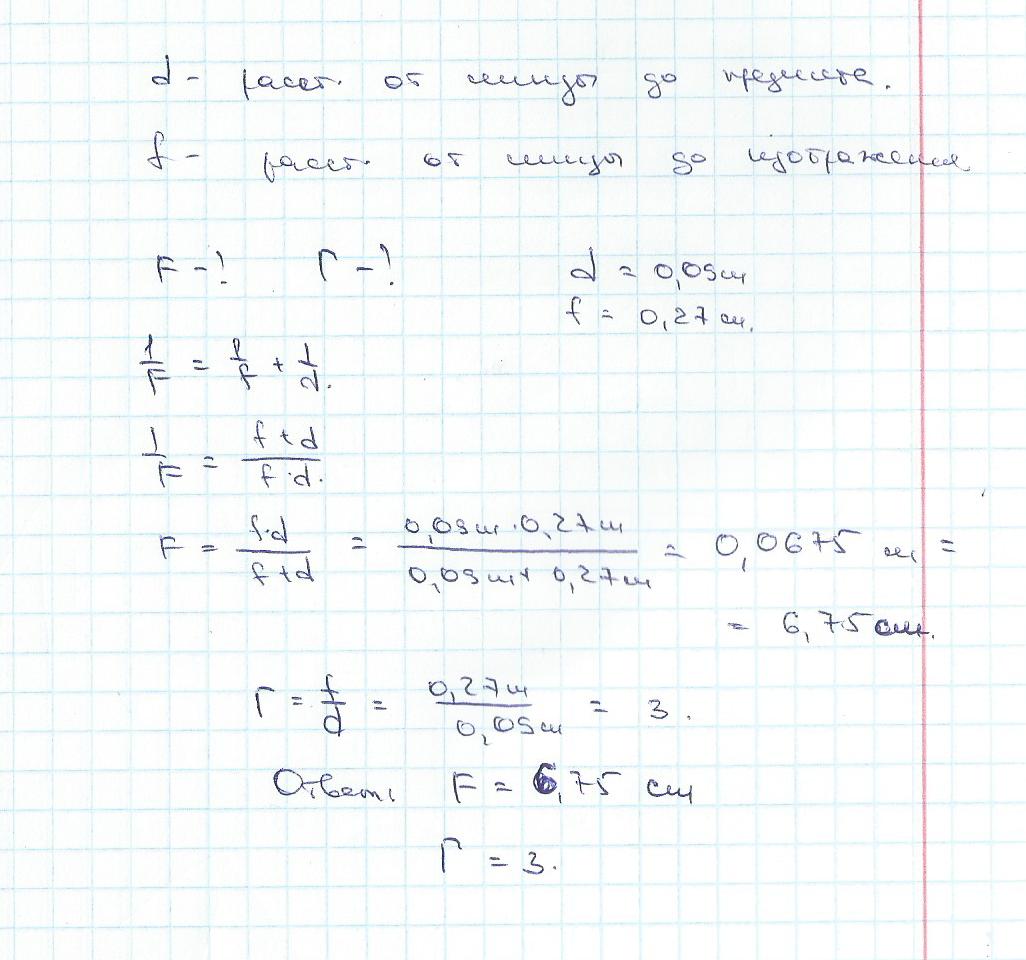 d - расст. от линзы до предмета.
f - расст. от линзы до изображения
F - ? Г - ? d = 0,09 м
f = 0,27 м.
1/F = 1/f + 1/d.
1/F = (f + d)/(f · d).
F = (f·d)/(f + d) = (0,09 м · 0,27 м)/(0,09 м + 0,27 м) = 0,0675 м =
= 6,75 см.
Г = f/d = 0,27 м/0,09 м = 3.
Ответ: F = 6,75 см
Г = 3.